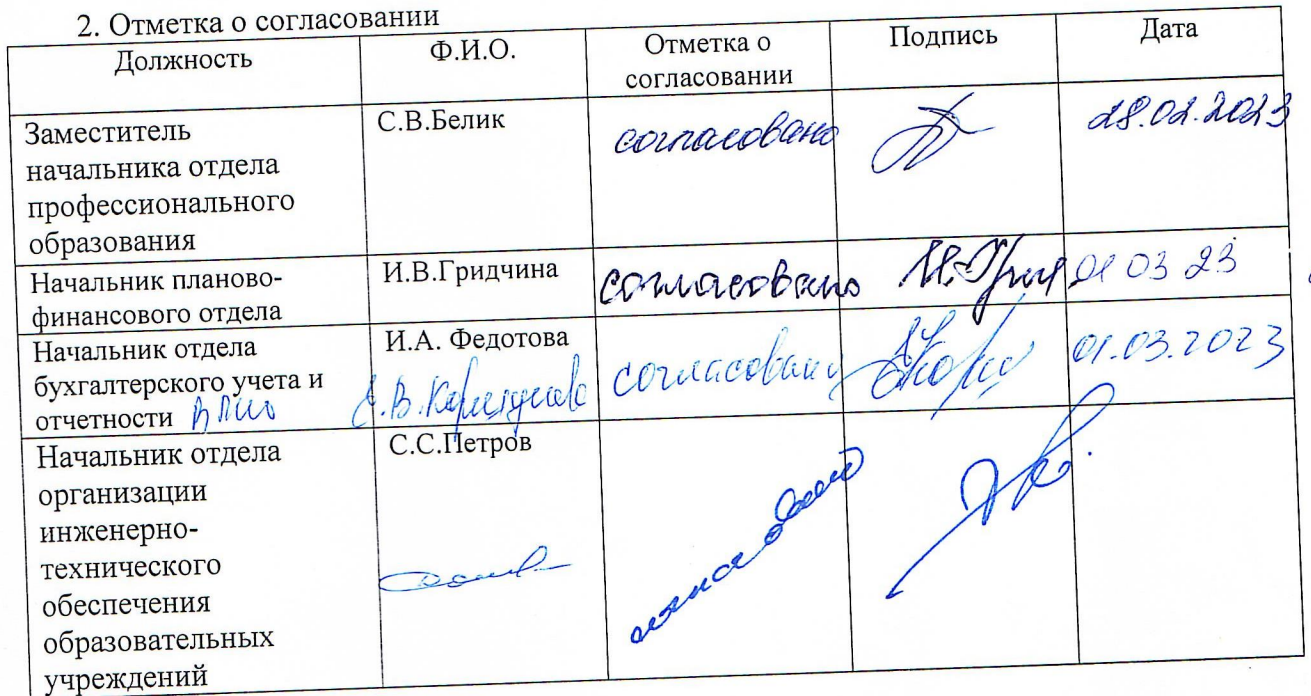 2. Отметка о согласовании
Должность Ф.И.О. Отметка о согласовании Подпись Дата
Заместитель
начальника отдела
профессионального
образования
С.В.Белик
согласовано
28.02.2023
Начальник планово-
финансового отдела
И.В.Гридчина
согласовано
01 03 23
Начальник отдела
бухгалтерского учета и
отчетности
И.А. Федотова
согласовано
01.03.2023
Начальник отдела
организации
инженерно-
технического
обеспечения
образовательных
учреждений
С.С.Петров
согласовано